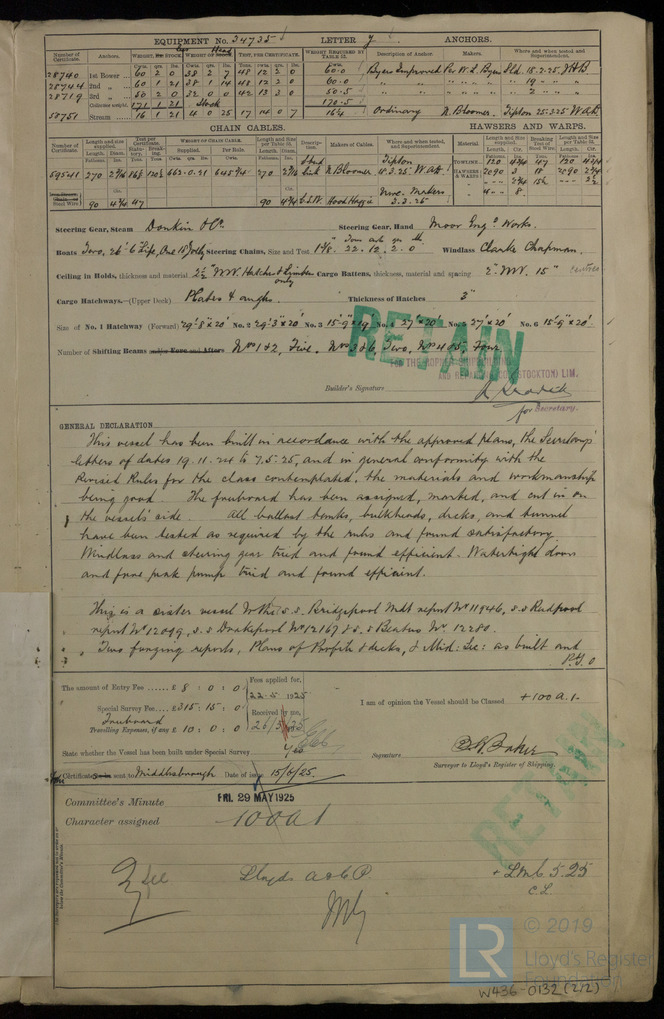 EQUIPMENT No. 34735 LETTER y ANCHORS.
Number of Certificate. Anchors. WEIGHT, Ex STOCK. WEIGHT OF Head TEST, PER CERTIFICATE. WEIGHT REQUIRED BY TABLE 32. Description of Anchor. Makers. Where and when tested and Superintendent.
28740 1st Bower 60 2 0 38 2 7 48 12 2 0 60.0 Byers Improved Per W. L. Byers Sld. 15.2.25. J.H.B
28744 2nd " 60 1 21 38 1 14 48 12 2 0 60.0 " " " " " " 19 - " "
28719 3rd " 50 2 0 32 0 0 42 13 3 0 50.5 " " " " " " 2 " "
Collective weight 171 1 21 Stock 170.5
58751 Stream 16 1 21 4 0 25 17 14 0 7 16¼ Ordinary N. Bloomer. Tipton 25.2.25 W.A.H.
CHAIN CABLES. HAWSERS AND WARPS.
Number of Certificate. Length and size supplied. Test per Certificate. WEIGHT OF CHAIN CABLE. Length and Size per Table 31. Description. Makers of Cables. Where and when tested, and Superintendent. Material. Length and Size supplied. Breaking Test of Steel Wire. Length and Size per Table 31.
Fathoms. Diam. Supplied. Per Rule. Fathoms. Diam.
59541 270 2 5/16 663.0.21 645.94 270 Stud Link N. Bloomer Tipton 18.3.25. W.A.H.
TOWLINE
HAWSERS & WARPS
Steel Wire 90 4¾ 47 90 4¾ G.S.W. Hood Haggie Wire Makers 3.3.25
Steering Gear, Steam Donkin & Co. Steering Gear, Hand Moor Engs Works.
Boats Two, 26' 6 Life, One 18' Jolly Steering Chains, Size and Test 1⅛" 22.12.2.0 Windlass Clarke Chapman.
Ceiling in Holds, thickness and material 2½" W.W. Hatches & Limbers only Cargo Battens, thickness, material and spacing 2" W.W. 15" centres
Cargo Hatchways.—(Upper Deck) Plates & angles. Thickness of Hatches 3"
Size of No. 1 Hatchway (Forward) 29'.8" x 20' No. 2 29'.3" x 20' No. 3 15'-9" x 19 No. 4 27' x 20' No. 5 27' x 20' No. 6 15'-9" x 20'
Number of Shifting Beams and/or Fore and Afters Nos 1 & 2, Five. Nos 3 & 6, Two, Nos 4 & 5, Four.
RETAIN
FOR THE ROPNER SHIPBUILDING
AND REPAIRING CO. (STOCKTON) LIM.
Builder's Signature
for Secretary.
GENERAL DECLARATION
This vessel has been built in accordance with the approved plans, the Secretary's
letters of dates 19.11.24 to 7.5.25, and in general conformity with the
Revised Rules for the class contemplated, the materials and workmanship
being good. The freeboard has been assigned, marked, and cut in on
the vessel's side. All ballast tanks, bulkheads, decks, and tunnel
have been tested as required by the rules and found satisfactory.
Windlass and steering gear tried and found efficient. Watertight doors
and fore peak pump tried and found efficient.
This is a sister vessel to the s.s. Bridgepool Mdb report No 11946, s.s Rudpool
report No 12099, s.s Drakepool No 12167 & s.s Beatus No. 12280.
Two forging reports, Plans of Profile & decks, & Mid: Sec: as built and
P.T.O
The amount of Entry Fee ...... £ 8 : 0 : 0
Special Survey Fee.... £315 : 15 : 0
Freeboard
Travelling Expenses, (if any) £ 10 : 0 : 0
Fees applied for,
22.5.1925
Received by me,
26/5/25
I am of opinion the Vessel should be Classed +100A.1.
State whether the Vessel has been built under Special Survey Yes
Signature Baker
Surveyor to Lloyd's Register of Shipping.
Certificate sent to Middlesbrough Date of issue 15/6/25.
RETAIN
Committee's Minute FRI. 29 MAY 1925
Character assigned 100A1
Lloyds A & C P.
+ LMC 5.25
C.L.
© 2019
LR
Lloyd's Register
Foundation
W436-0132 (2/2)